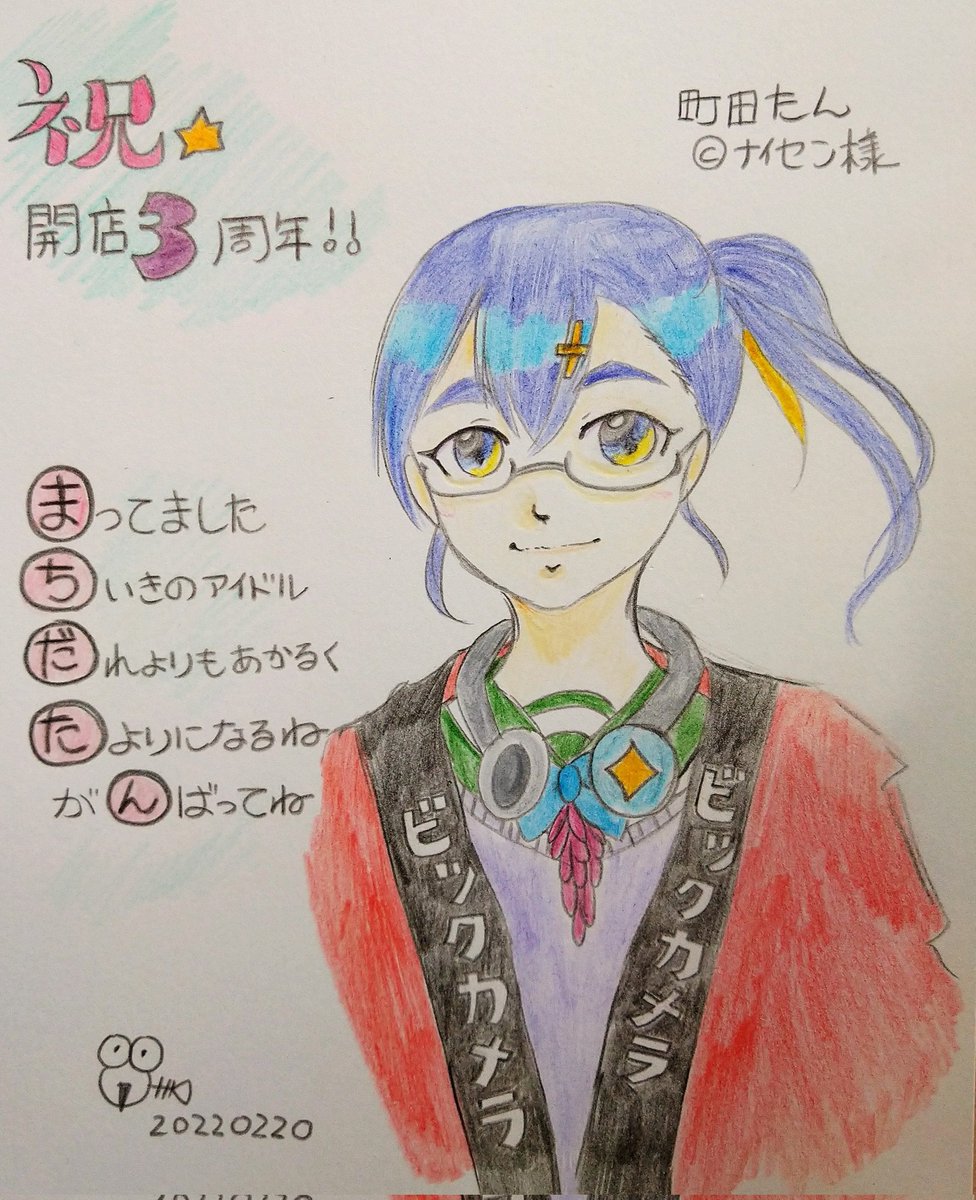 祝☆
開店3周年!!
町田たん
©ナイセン様
まってました
ちいきのアイドル
だれよりもあかるく
たよりになるね
がんばってね
ビックカメラ
ビックカメラ
20220220